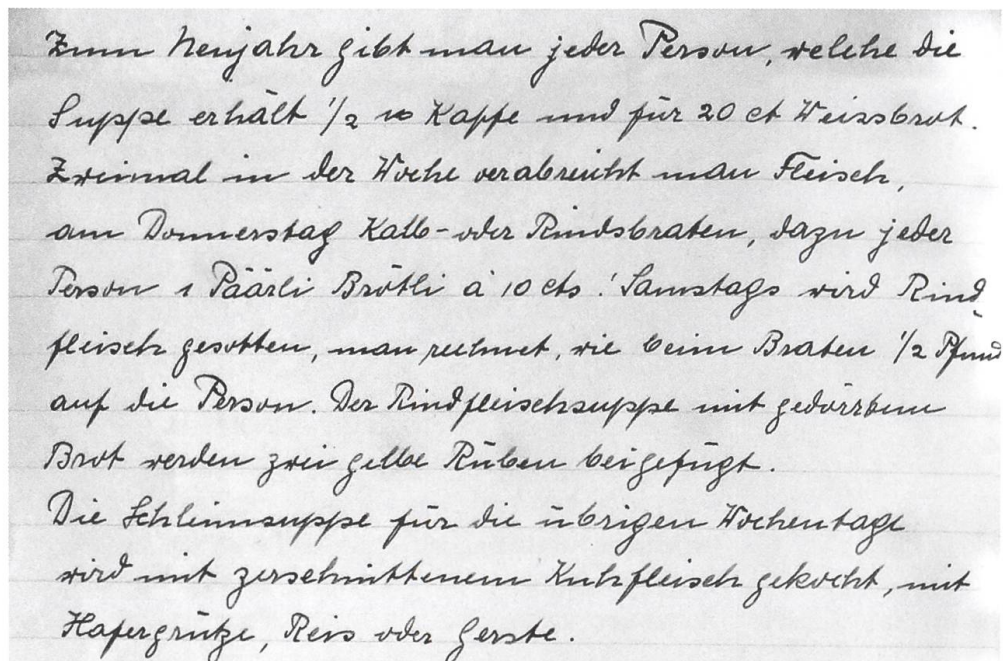 Zum Neujahr gibt man jeder Person, welche die
Suppe erhält 1/2 ℔ Kaffe und für 20 ct Weissbrot.
Zweimal in der Woche verabreicht man Fleisch,
am Donnerstag Kalb- oder Rindsbraten, dazu jeder
Person 1 Päärli Brötli à 10 cts. Samstags wird Rind
fleisch gesotten, man rechnet, wie beim Braten 1/2 Pfund
auf die Person. Der Rindfleischsuppe mit gedörrtem
Brot werden zwei gelbe Rüben beigefügt.
Die Schleimsuppe für die übrigen Wochentage
wird mit zerschnittenem Kuhfleisch gekocht, mit
Hafergrütze, Reis oder Gerste.